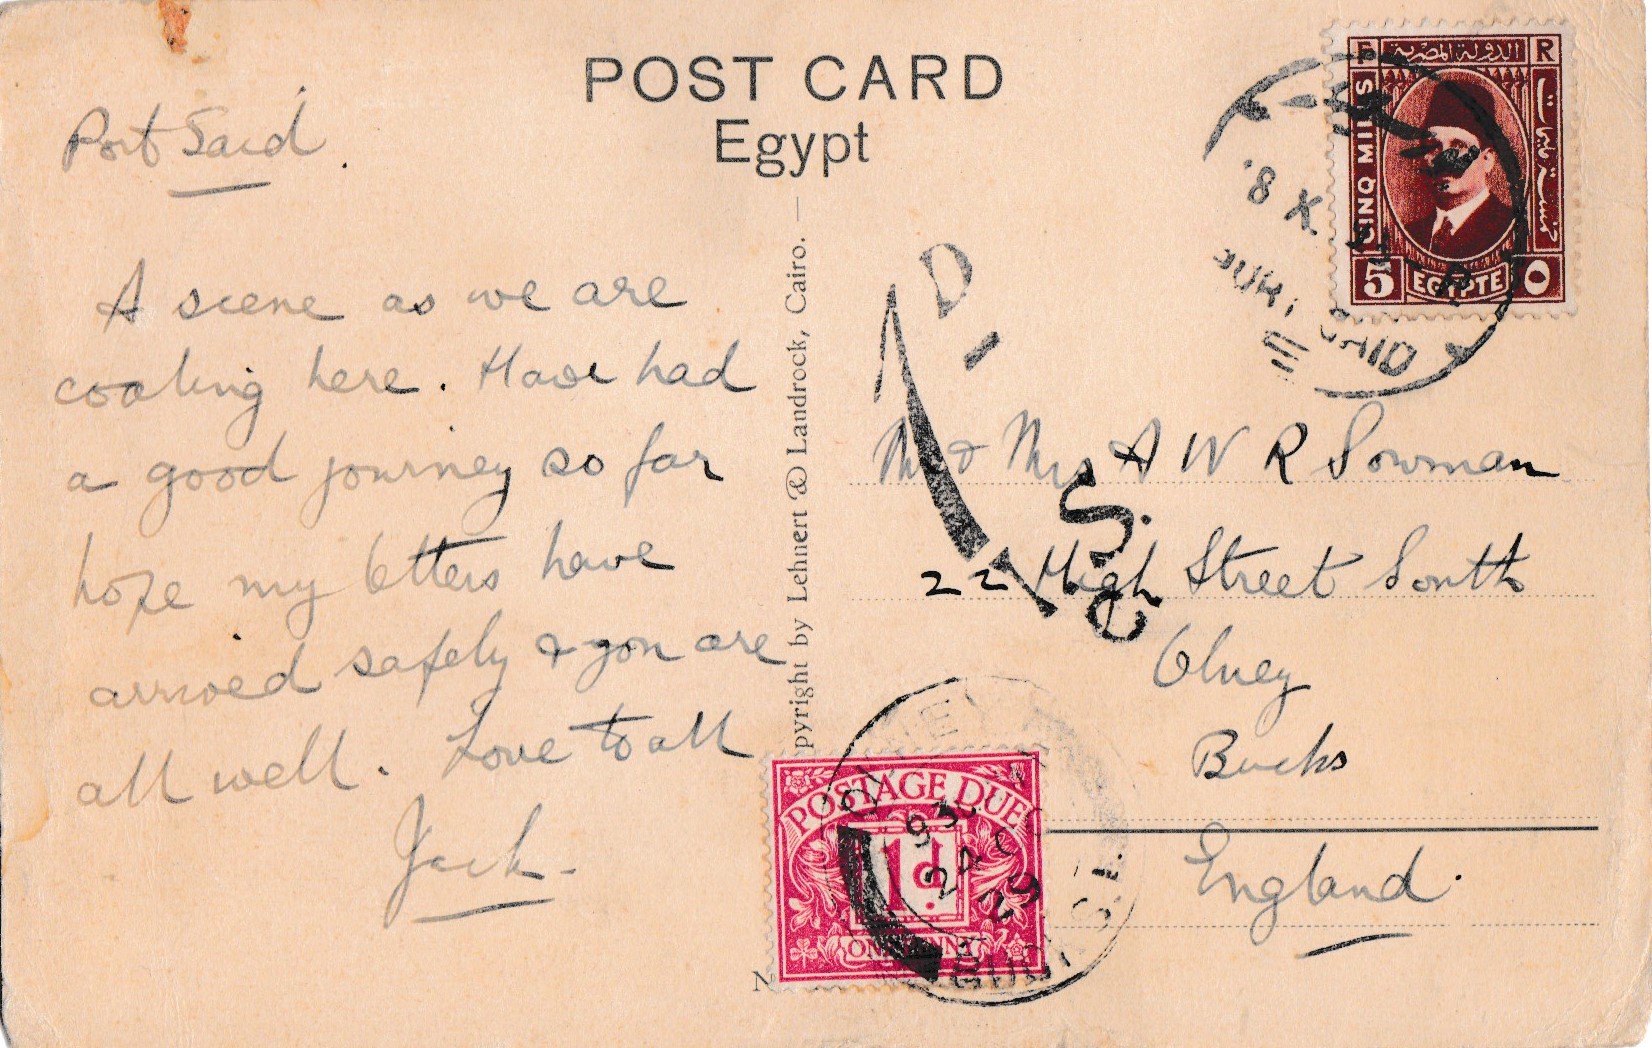 POST CARD
Egypt
Port Said.
A scene as we are
coaling here. Have had
a good journey so far
hope my letters have
arrived safely & you are
all well. Love to all
Jack.
pyright by Lehnert & Landrock, Cairo.
F R
الدولة المصرية
CINQ MILLS
5 EGYPTE ٥
8 X
PORT SAID
1D
Mr & Mrs A W R Sowman
22 High Street South
Olney
Bucks
England.
POSTAGE DUE
1d.
ONE PENNY
OLNEY
930
24 OC
29
BUCKS.
Nº